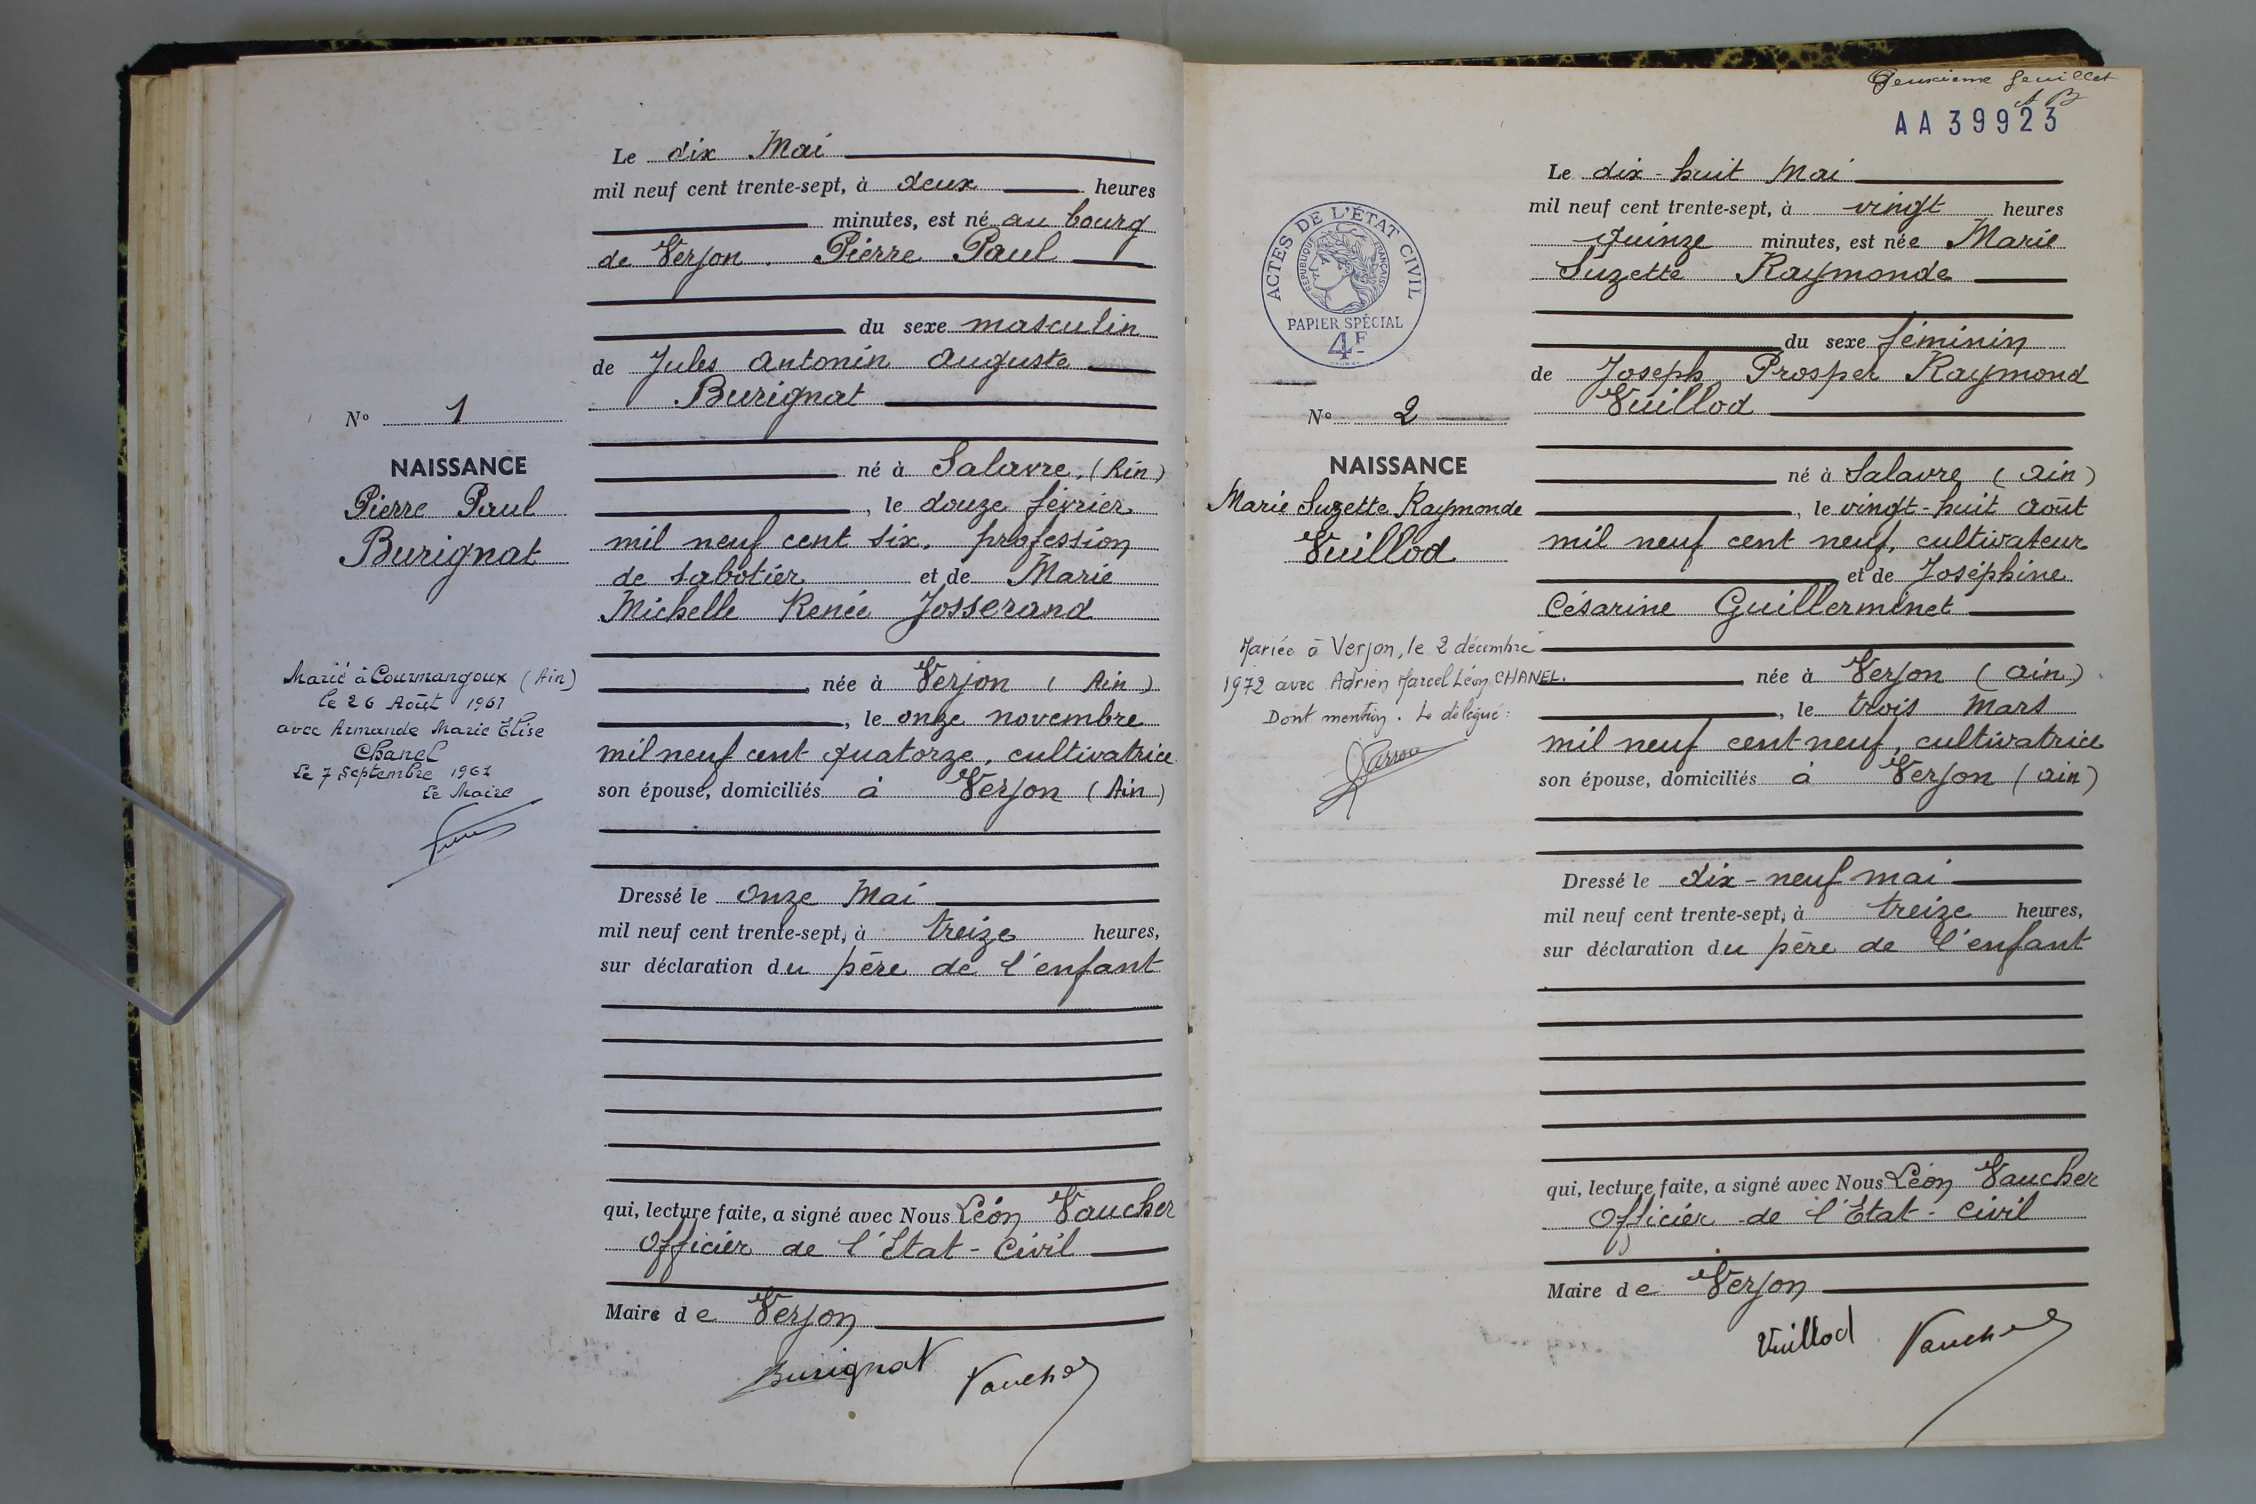 Le dix Mai
mil neuf cent trente-sept, à deux heures
minutes, est né au bourg
de Verjon. Pierre Paul
du sexe masculin
de Jules Antonin Auguste
Burignat
né à Salavre, (Ain)
, le douze février
mil neuf cent six, profession
de sabotier et de Marie
Michelle Renée Josserand
née à Verjon (Ain)
, le onze novembre
mil neuf cent quatorze, cultivatrice
son épouse, domiciliés à Verjon (Ain)
Dressé le onze Mai
mil neuf cent trente-sept, à treize heures,
sur déclaration du père de l'enfant
qui, lecture faite, a signé avec Nous Léon Vaucher
Officier de l'Etat-Civil
Maire de Verjon
Burignat Vaucher
N° 1
NAISSANCE
Pierre Paul
Burignat
Marié à Courmangoux (Ain)
le 26 Août 1961
avec Armande Marie Elise
Chanel
Le 7 Septembre 1961
Le Maire
Deuxième feuillet
AA 39923
ACTES DE L'ÉTAT CIVIL
REPUBLIQUE FRANÇAISE
PAPIER SPÉCIAL
4F
N° 2
NAISSANCE
Marie Suzette Raymonde
Vuillod
Mariée à Verjon, le 2 décembre
1972 avec Adrien Marcel Léon CHANEL.
Dont mention. Le délégué:
Le dix-huit Mai
mil neuf cent trente-sept, à vingt heures
quinze minutes, est née Marie
Suzette Raymonde
du sexe féminin
de Joseph Prosper Raymond
Vuillod
né à Salavre (Ain)
, le vingt-huit Août
mil neuf cent neuf, cultivateur
et de Joséphine
Césarine Guillerminet
née à Verjon (Ain)
, le trois Mars
mil neuf cent neuf, cultivatrice
son épouse, domiciliés à Verjon (Ain)
Dressé le dix-neuf mai
mil neuf cent trente-sept, à treize heures,
sur déclaration du père de l'enfant
qui, lecture faite, a signé avec Nous Léon Vaucher
Officier de l'Etat-Civil
Maire de Verjon
Vuillod Vaucher